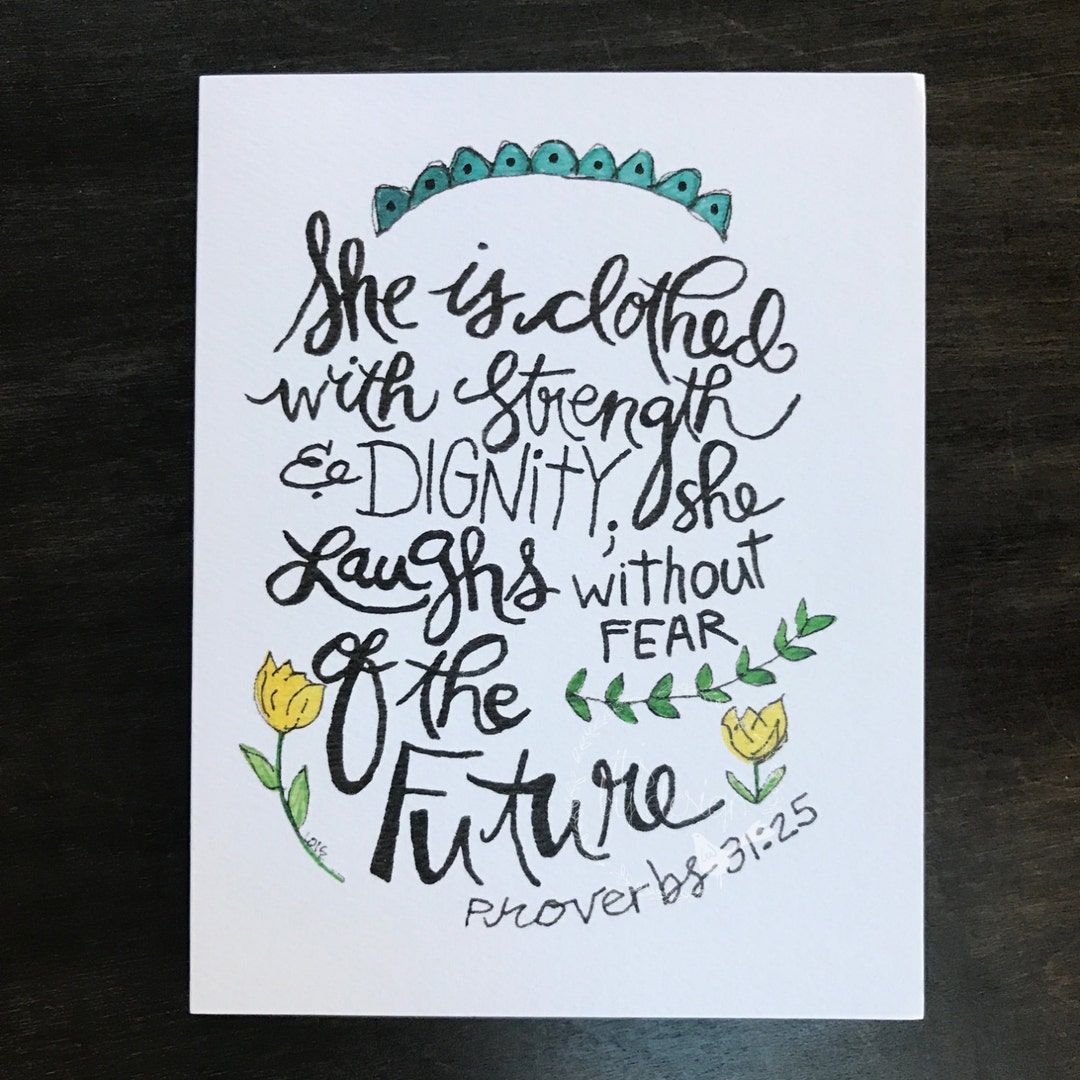 She is clothed
with strength
& DIGNiTY; she
Laughs without
FEAR
of the
Future
Proverbs 31:25